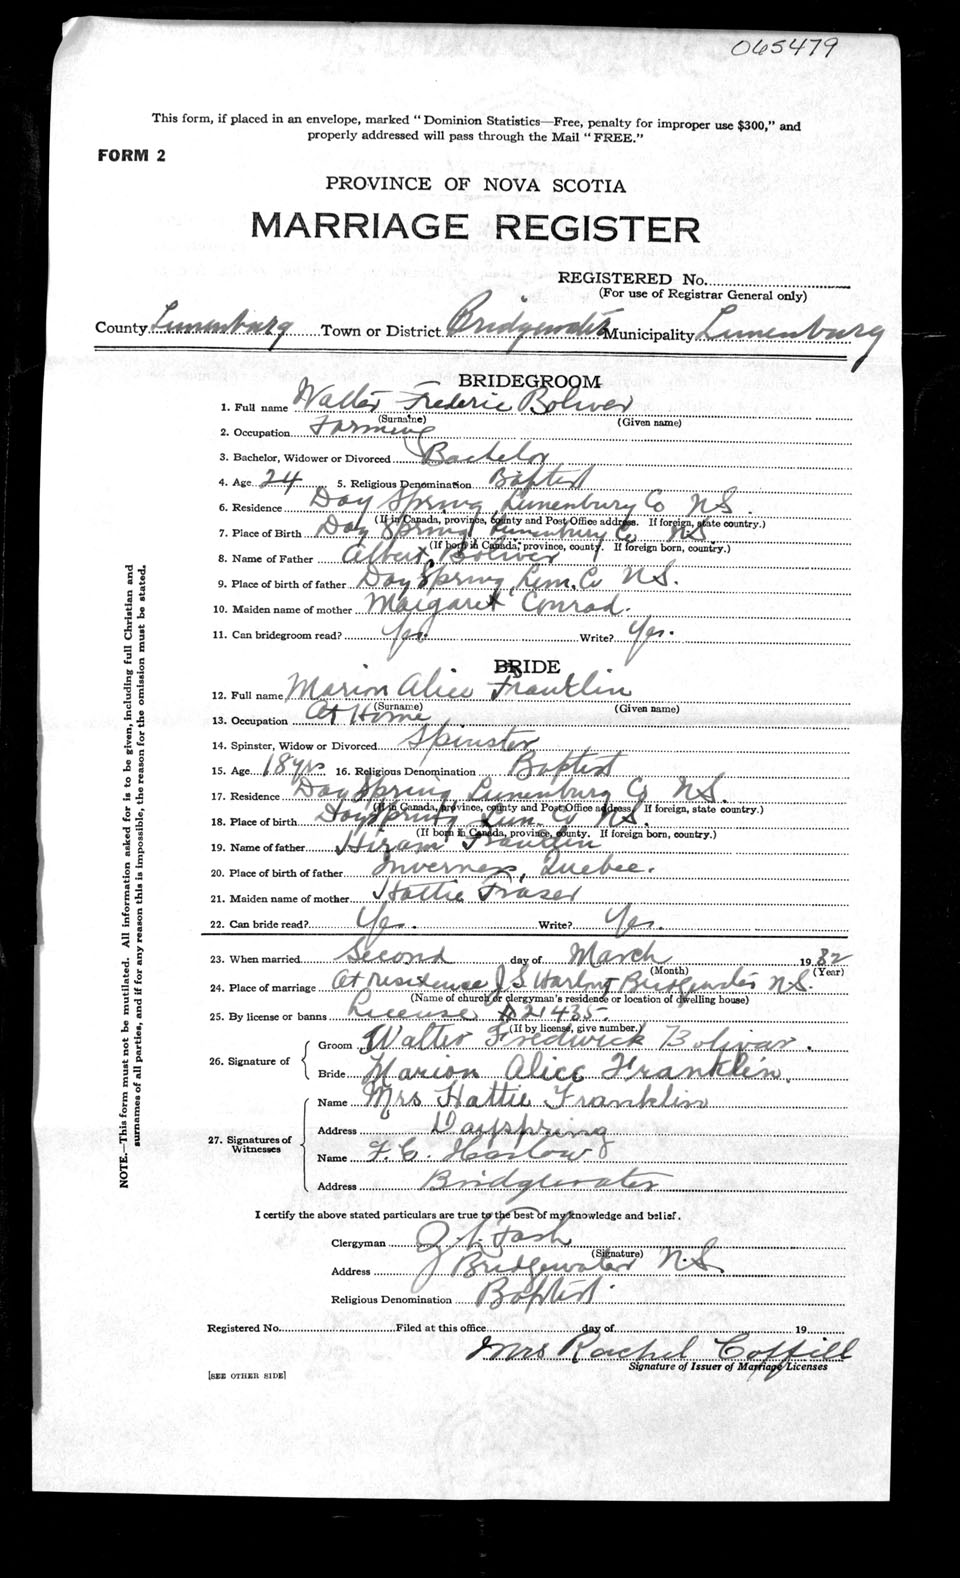 065479
This form, if placed in an envelope, marked "Dominion Statistics—Free, penalty for improper use $300," and
properly addressed will pass through the Mail "FREE."
FORM 2
PROVINCE OF NOVA SCOTIA
MARRIAGE REGISTER
REGISTERED No.
(For use of Registrar General only)
County Lunenburg Town or District Bridgewater Municipality Lunenburg
BRIDEGROOM
1. Full name Walter Frederic Boliver
(Surname) (Given name)
2. Occupation Farming
3. Bachelor, Widower or Divorced Bachelor
4. Age 24 5. Religious Denomination Baptist
6. Residence Day Spring Lunenburg Co N.S.
(If in Canada, province, county and Post Office address. If foreign, state country.)
7. Place of Birth Day Spring Lunenburg Co N.S.
(If born in Canada, province, county. If foreign born, country.)
8. Name of Father Albert Boliver
9. Place of birth of father Day Spring Lun. Co N.S.
10. Maiden name of mother Margaret Conrad.
11. Can bridegroom read? Yes. Write? Yes.
BRIDE
12. Full name Marion Alice Franklin
(Surname) (Given name)
13. Occupation At Home
14. Spinster, Widow or Divorced Spinster
15. Age 18 yrs 16. Religious Denomination Baptist
17. Residence Day Spring Lunenburg Co N.S.
(If in Canada, province, county and Post Office address. If foreign, state country.)
18. Place of birth Day Spring Lun. Co N.S.
(If born in Canada, province, county. If foreign born, country.)
19. Name of father Hiram Franklin
20. Place of birth of father Inverness, Quebec.
21. Maiden name of mother Hattie Fraser
22. Can bride read? Yes. Write? Yes.
23. When married Second day of March 1932
(Month) (Year)
24. Place of marriage At residence J S Harlow Bridgewater N.S.
(Name of church or clergyman's residence or location of dwelling house)
25. By license or banns License 21435
(If by license, give number.)
26. Signature of
Groom Walter Fredwick Bolivar.
Bride Marion Alice Franklin.
27. Signatures of Witnesses
Name Mrs Hattie Franklin
Address Dayspring
Name F. C. Harlow
Address Bridgewater
I certify the above stated particulars are true to the best of my knowledge and belief.
Clergyman Fash
(Signature)
Address Bridgewater N.S.
Religious Denomination Baptist.
Registered No. Filed at this office day of 19
Mrs Rachel Coffill
Signature of Issuer of Marriage Licenses
[SEE OTHER SIDE]
NOTE.—This form must not be mutilated. All information asked for is to be given, including full Christian and
surnames of all parties, and if for any reason this is impossible, the reason for the omission must be stated.